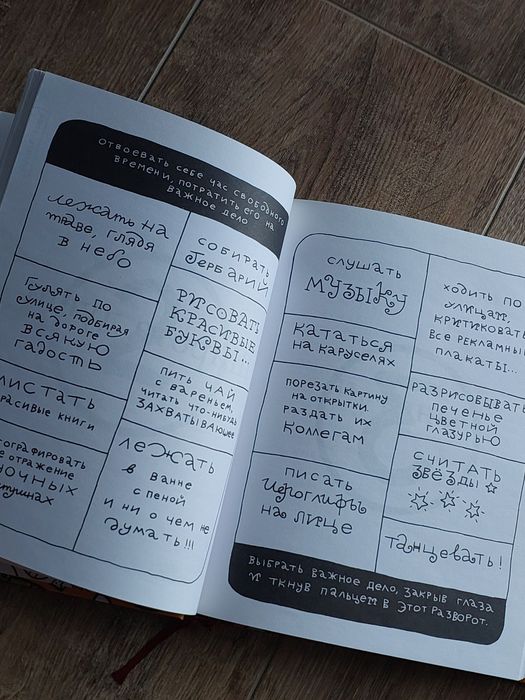 ОТВОЕВАТЬ СЕБЕ ЧАС СВОБОДНОГО
ВРЕМЕНИ, ПОТРАТИТЬ ЕГО НА
ВАЖНОЕ ДЕЛО
лежать на
траве, глядя
в небо
СОБИРАТЬ
ГЕРБАРИЙ
ГУЛЯТЬ ПО
УЛИЦЕ, ПОДБИРАЯ
НА ДОРОГЕ
ВСЯКУЮ
ГАДОСТЬ
РИСОВАТЬ
КРАСИВЫЕ
БУКВЫ...
ЛИСТАТЬ
КРАСИВЫЕ КНИГИ
ПИТЬ ЧАЙ
С ВАРЕНЬЕМ,
ЧИТАТЬ ЧТО-НИБУДЬ
ЗАХВАТЫВАЮЩЕЕ
ОТРАЖЕНИЕ
ЛЕЖАТЬ
В ВАННЕ
С ПЕНОЙ
И НИ О ЧЕМ НЕ
ДУМАТЬ!!!
СЛУШАТЬ
МУЗЫКУ
ХОДИТЬ ПО
УЛИЦАМ,
КРИТИКОВАТЬ
ВСЕ РЕКЛАМНЫЕ
ПЛАКАТЫ...
КАТАТЬСЯ
НА КАРУСЕЛЯХ
ПОРЕЗАТЬ КАРТИНУ
НА ОТКРЫТКИ.
РАЗДАТЬ ИХ
КОЛЛЕГАМ
РАЗРИСОВЫВАТЬ
ПЕЧЕНЬЕ
ЦВЕТНОЙ
ГЛАЗУРЬЮ
ПИСАТЬ
ИЕРОГЛИФЫ
НА ЛИЦЕ
СЧИТАТЬ
ЗВЁЗДЫ
ТАНЦЕВАТЬ!
ВЫБРАТЬ ВАЖНОЕ ДЕЛО, ЗАКРЫВ ГЛАЗА
И ТКНУВ ПАЛЬЦЕМ В ЭТОТ РАЗВОРОТ.